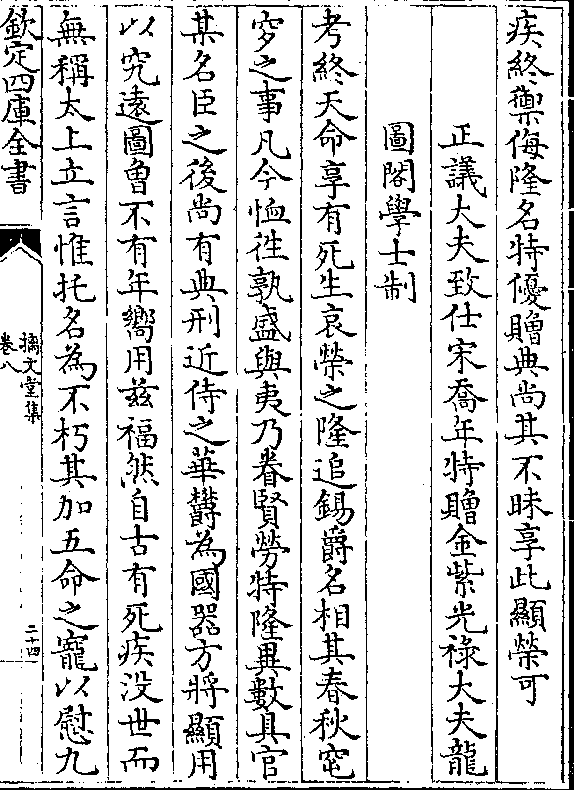 疾終禦侮隆名特優贈典尚其不昧享此顯榮可
正議大夫致仕宋喬年特贈金紫光祿大夫龍
圖閣學士制
考終天命享有死生哀榮之隆追錫爵名相其春秋窀
穸之事凡今恤徃孰盛與夷乃眷賢勞特隆異數具官
某名臣之後尚有典刑近侍之華欝為國器方將顯用
以究遠圖曾不有年嚮用兹福然自古有死疾没世而
無稱太上立言惟托名為不朽其加五命之寵以慰九
欽定四庫全書
摛文堂集
卷八
二十四